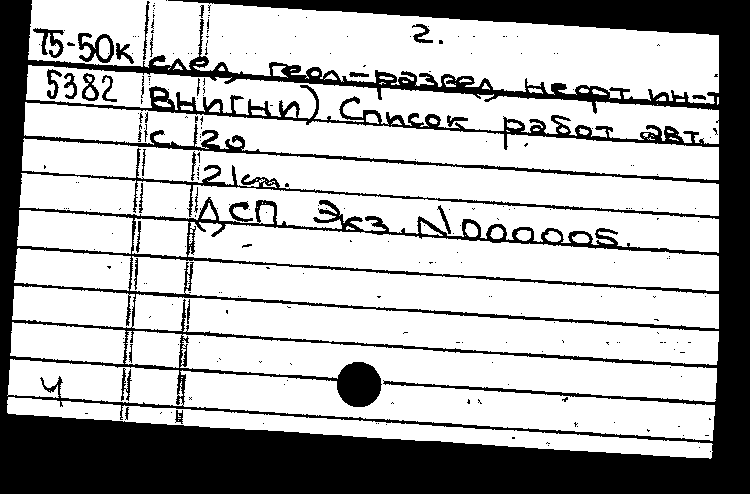 2.
75-50к след. геол.-развед. нефт. ин-т
5382 ВНИГНИ). Список работ авт.
с. 20.
21 cm.
ДСП. Экз. N 000005.
4